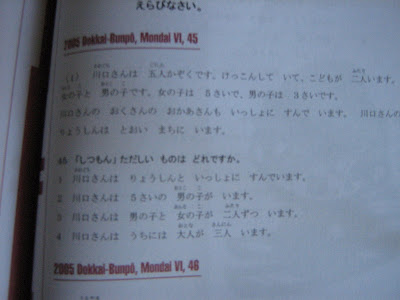 えらびなさい。
2005 Dokkai-Bunpō, Mondai VI, 45
(1) 川口さんは 五人かぞくです。けっこんして いて、こどもが 二人います。
女の子と 男の子です。女の子は 5さいで、男の子は 3さいです。
川口さんの おくさんの おかあさんも いっしょに すんで います。 川口さんの
りょうしんは とおい まちに います。
45 「しつもん」ただしい ものは どれですか。
1 川口さんは りょうしんと いっしょに すんでいます。
2 川口さんは 5さいの 男の子が います。
3 川口さんは 男の子と 女の子が 二人ずつ います。
4 川口さんは うちには 大人が 三人 います。
2005 Dokkai-Bunpō, Mondai VI, 46